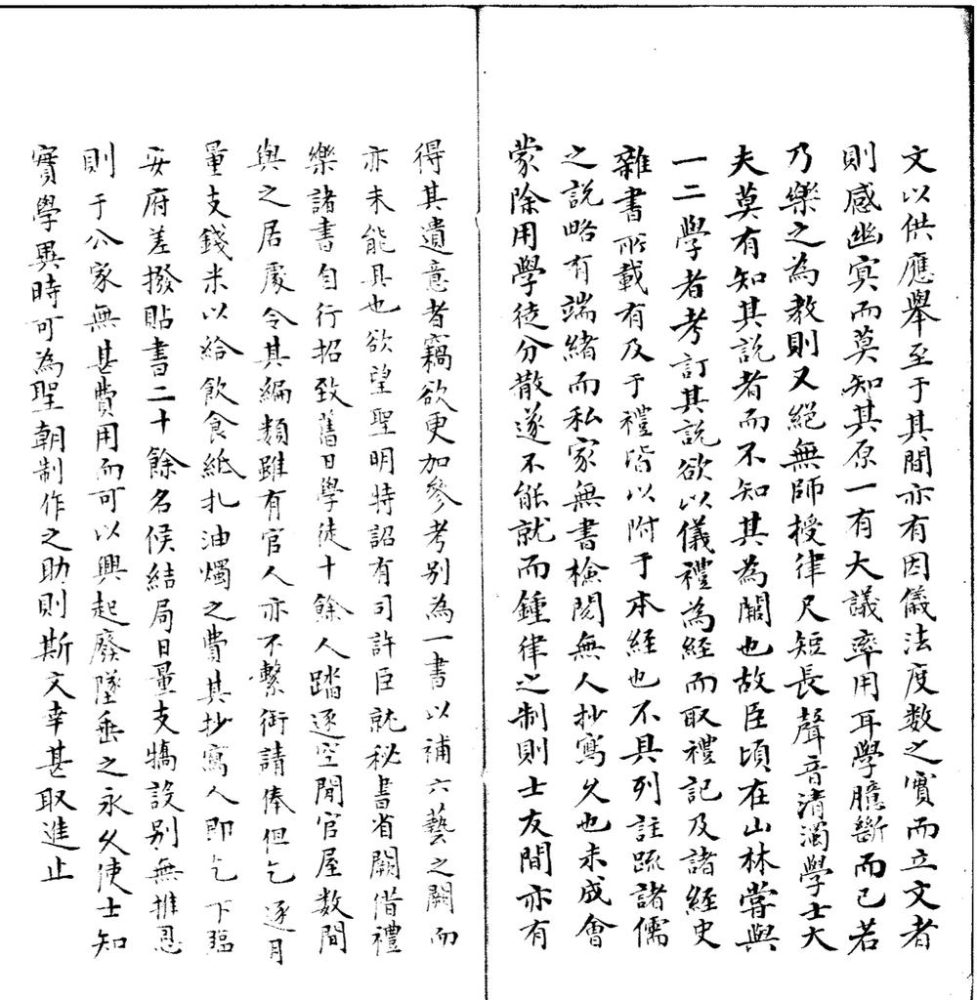 文以供應舉至于其間亦有因儀法度数之實而立文者
則感幽冥而莫知其原一有大議率用耳學臆斷而已若
乃樂之為教則又絕無師授律尺短長聲音清濁學士大
夫莫有知其説者而不知其為闕也故臣頃在山林嘗與
一二學者考訂其説欲以儀禮為經而取禮記及諸經史
雜書所載有及于禮皆以附于本經也不具列註疏諸儒
之説略有端緒而私家無書檢閲無人抄寫久也未成會
蒙除用學徒分散遂不能就而鍾律之制則士友間亦有
得其遺意者竊欲更加參考别為一書以補六藝之闕而
亦未能具也欲望聖明特詔有司許臣就秘書省關借禮
樂諸書自行招致舊日學徒十餘人踏逐空閒官屋数間
與之居處令其編類雖有官人亦不繫銜請俸但乞逐月
量支錢米以給飲食紙札油燭之費其抄寫人即乞下臨
安府差撥貼書二十餘名候結局日量支犒設别無推恩
則于公家無甚費用而可以興起廢墜垂之永久使士知
實學異時可為聖朝制作之助則斯文幸甚取進止